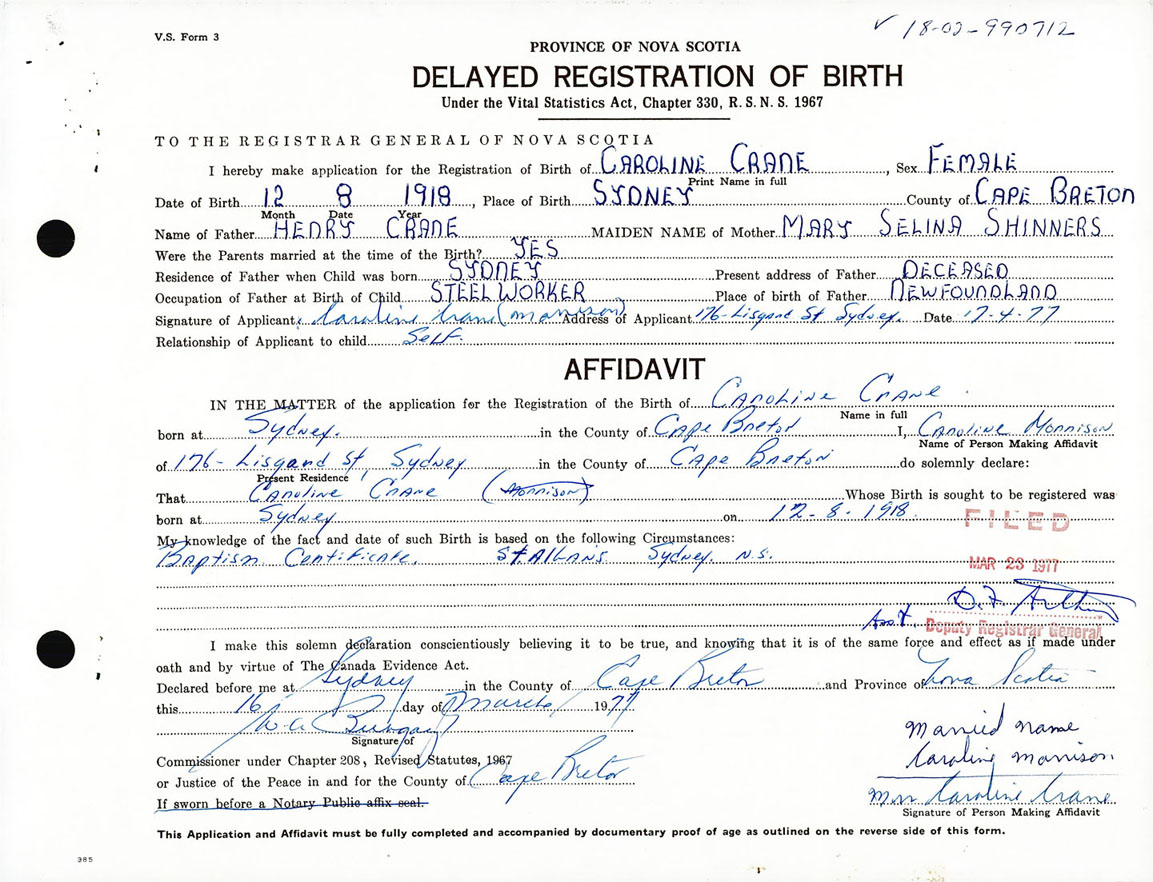 V.S. Form 3
✓ 18-02-990712
PROVINCE OF NOVA SCOTIA
DELAYED REGISTRATION OF BIRTH
Under the Vital Statistics Act, Chapter 330, R.S.N.S. 1967
TO THE REGISTRAR GENERAL OF NOVA SCOTIA
I hereby make application for the Registration of Birth of CAROLINE CRANE, Sex FEMALE
Print Name in full
Date of Birth 12 8 1918, Place of Birth SYDNEY County of CAPE BRETON
Month Date Year
Name of Father HENRY CRANE MAIDEN NAME of Mother MARY SELINA SHINNERS
Were the Parents married at the time of the Birth? YES
Residence of Father when Child was born SYDNEY Present address of Father DECEASED
Occupation of Father at Birth of Child STEEL WORKER Place of birth of Father NEWFOUNDLAND
Signature of Applicant: Caroline Crane (Morrison) Address of Applicant 176-Lisgand St Sydney. Date 17-4-77
Relationship of Applicant to child Self.
AFFIDAVIT
IN THE MATTER of the application for the Registration of the Birth of Caroline Crane
Name in full
born at Sydney. in the County of Cape Breton I, Caroline Morrison
Name of Person Making Affidavit
of 176- Lisgand St, Sydney in the County of Cape Breton do solemnly declare:
Present Residence
That Caroline Crane (Morrison) Whose Birth is sought to be registered was
born at Sydney on 12-8-1918.
FILED
My knowledge of the fact and date of such Birth is based on the following Circumstances:
Baptism Certificate. St. Alban's Sydney. N.S.
MAR 23 1977
D.F.
Asst. Deputy Registrar General
I make this solemn declaration conscientiously believing it to be true, and knowing that it is of the same force and effect as if made under
oath and by virtue of The Canada Evidence Act.
Declared before me at Sydney in the County of Cape Breton and Province of Nova Scotia
this 16 day of March 1977
W.A.
Signature of
Commissioner under Chapter 208, Revised Statutes, 1967
or Justice of the Peace in and for the County of Cape Breton
If sworn before a Notary Public affix seal.
Married Name
Caroline Morrison
Mrs Caroline Crane
Signature of Person Making Affidavit
This Application and Affidavit must be fully completed and accompanied by documentary proof of age as outlined on the reverse side of this form.
385